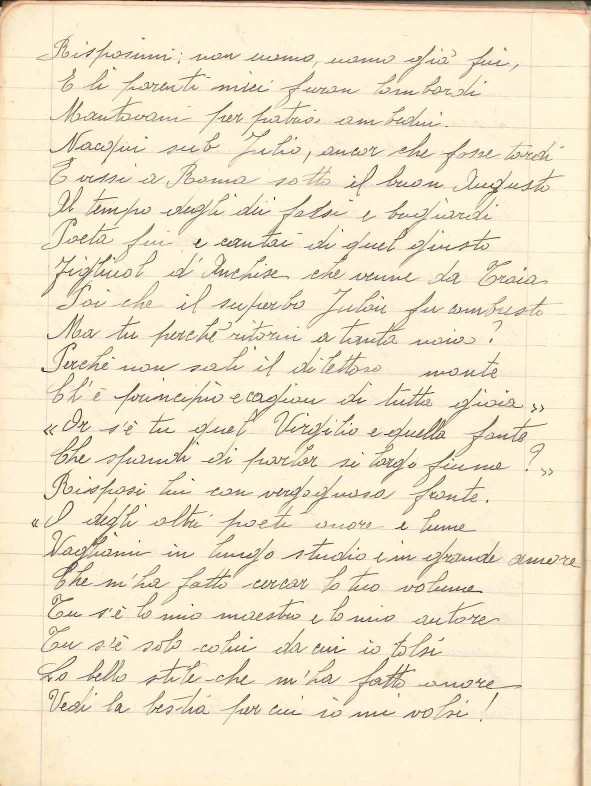 Risposimi; non uomo, uomo già fui,
E li parenti miei furon lombardi
Mantovani per patria ambidui.
Nacqui sub Julio, ancor che fosse tardi
E vissi a Roma sotto il buon Augusto
Al tempo degli dei falsi e bugiardi
Poeta fui e cantai di quel giusto
Figliuol d'Anchise che venne da Troia
Poi che il superbo Julion fu combusto
Ma tu perchè ritorni a tanta noia?
Perchè non sali il dilettoso monte
Ch'è principio e cagion di tutta gioia »
« Or s'è tu quel Virgilio e quella fonte
Che spandi di parlar si largo fiume? »
Risposi lui con vergognosa fronte.
« O degli altri poeti onore e lume
Vagliami in lungo studio e in grande amore
Che m'ha fatto cercar lo tuo volume
Tu s'è lo mio maestro e lo mio autore
Tu s'è solo colui da cui io tolsi
Lo bello stile che m'ha fatto onore
Vedi la bestia per cui io mi volsi!